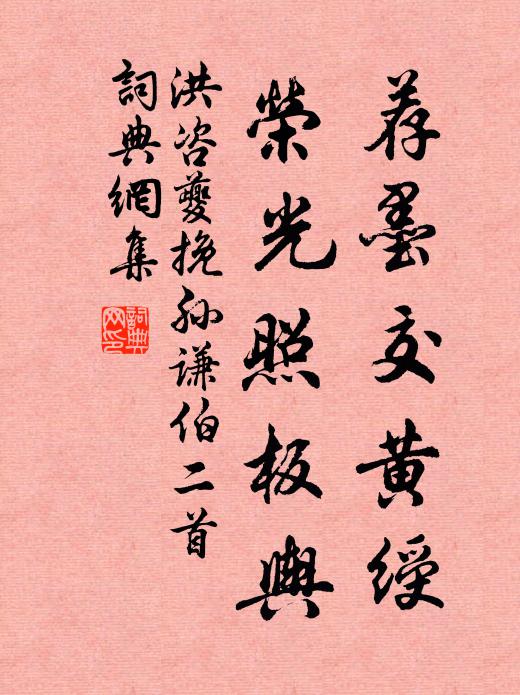 荐墨交黄綬
榮光照板輿
洪咨夔挽孙謙伯二首
詞典網集
詞典网印